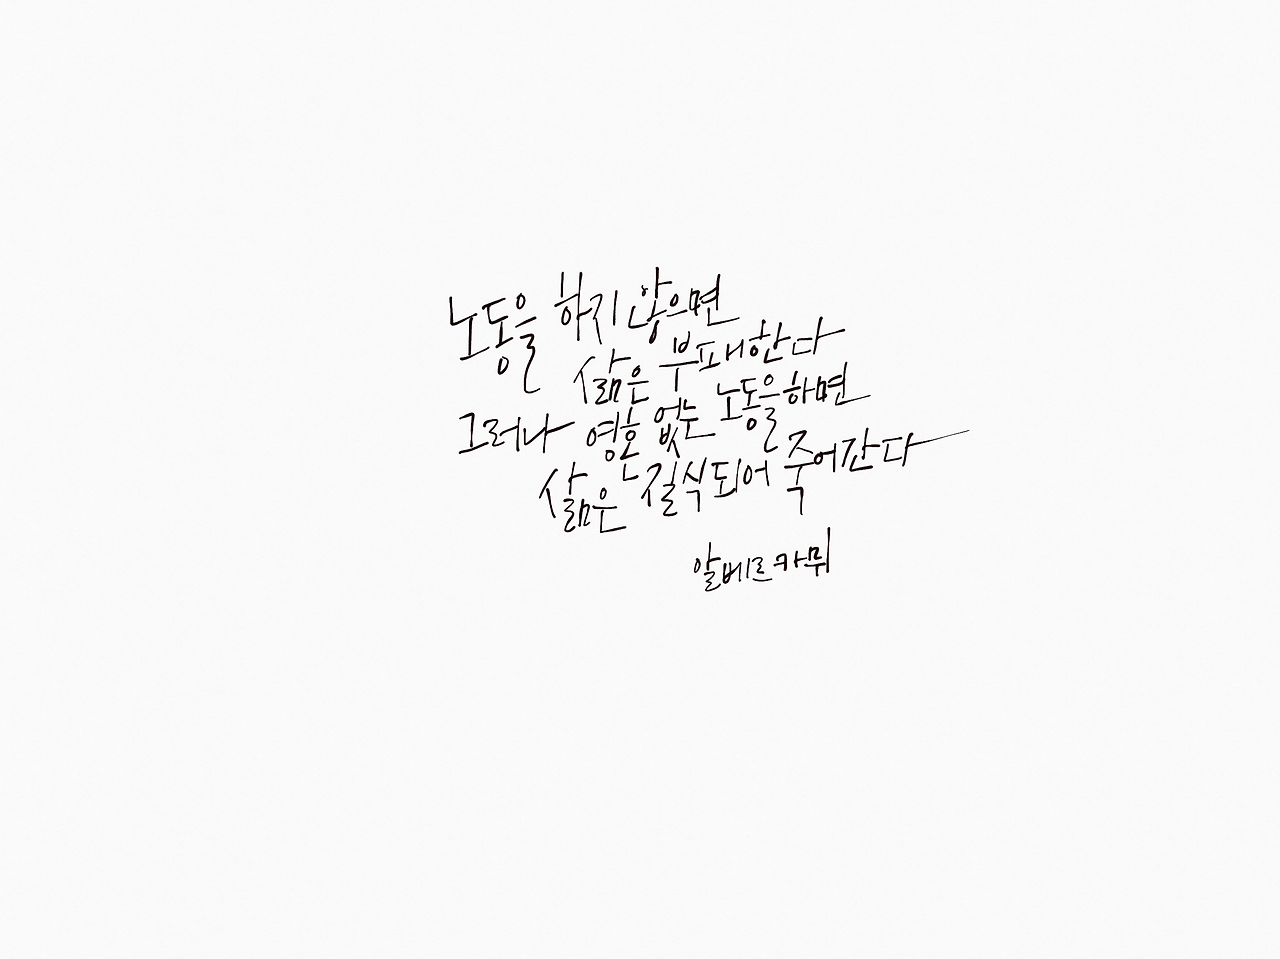 노동을 하지 않으면
삶은 부패한다
그러나 영혼 없는 노동을 하면
삶은 질식되어 죽어간다
알베르 카뮈